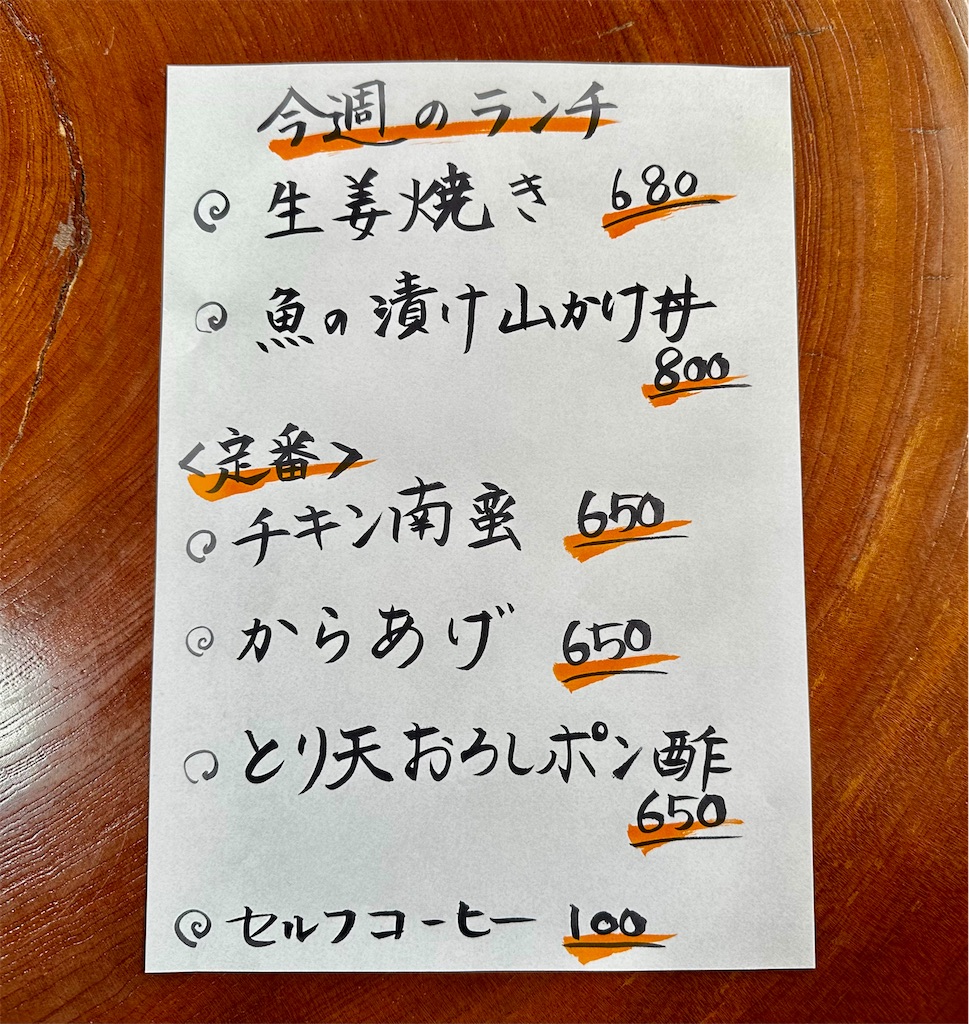 今週のランチ
生姜焼き 680
魚の漬け山かけ丼
800
<定番>
チキン南蛮 650
からあげ 650
とり天おろしポン酢
650
セルフコーヒー 100